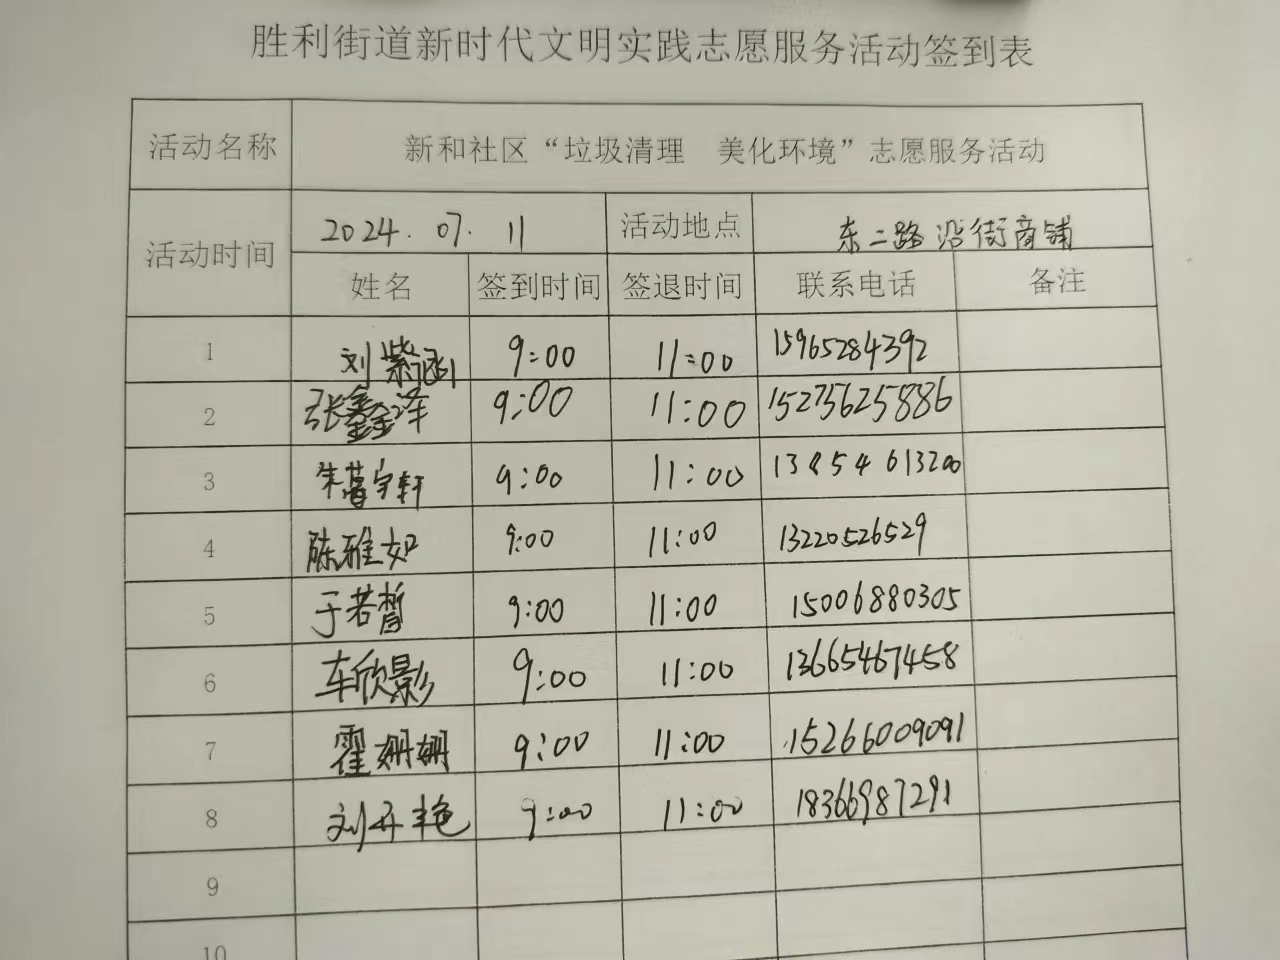 胜利街道新时代文明实践志愿服务活动签到表
活动名称 新和社区“垃圾清理 美化环境”志愿服务活动
活动时间 2024.07.11 活动地点 东二路沿街商铺
姓名 签到时间 签退时间 联系电话 备注
1 刘紫涵 9:00 11:00 15965284392
2 张鑫泽 9:00 11:00 15275625886
3 朱宇轩 9:00 11:00 13854613200
4 陈雅如 9:00 11:00 13220526529
5 于若皙 9:00 11:00 15006880305
6 车欣影 9:00 11:00 13665467458
7 霍姗姗 9:00 11:00 15266009091
8 刘丹艳 9:00 11:00 18366987291
9
10